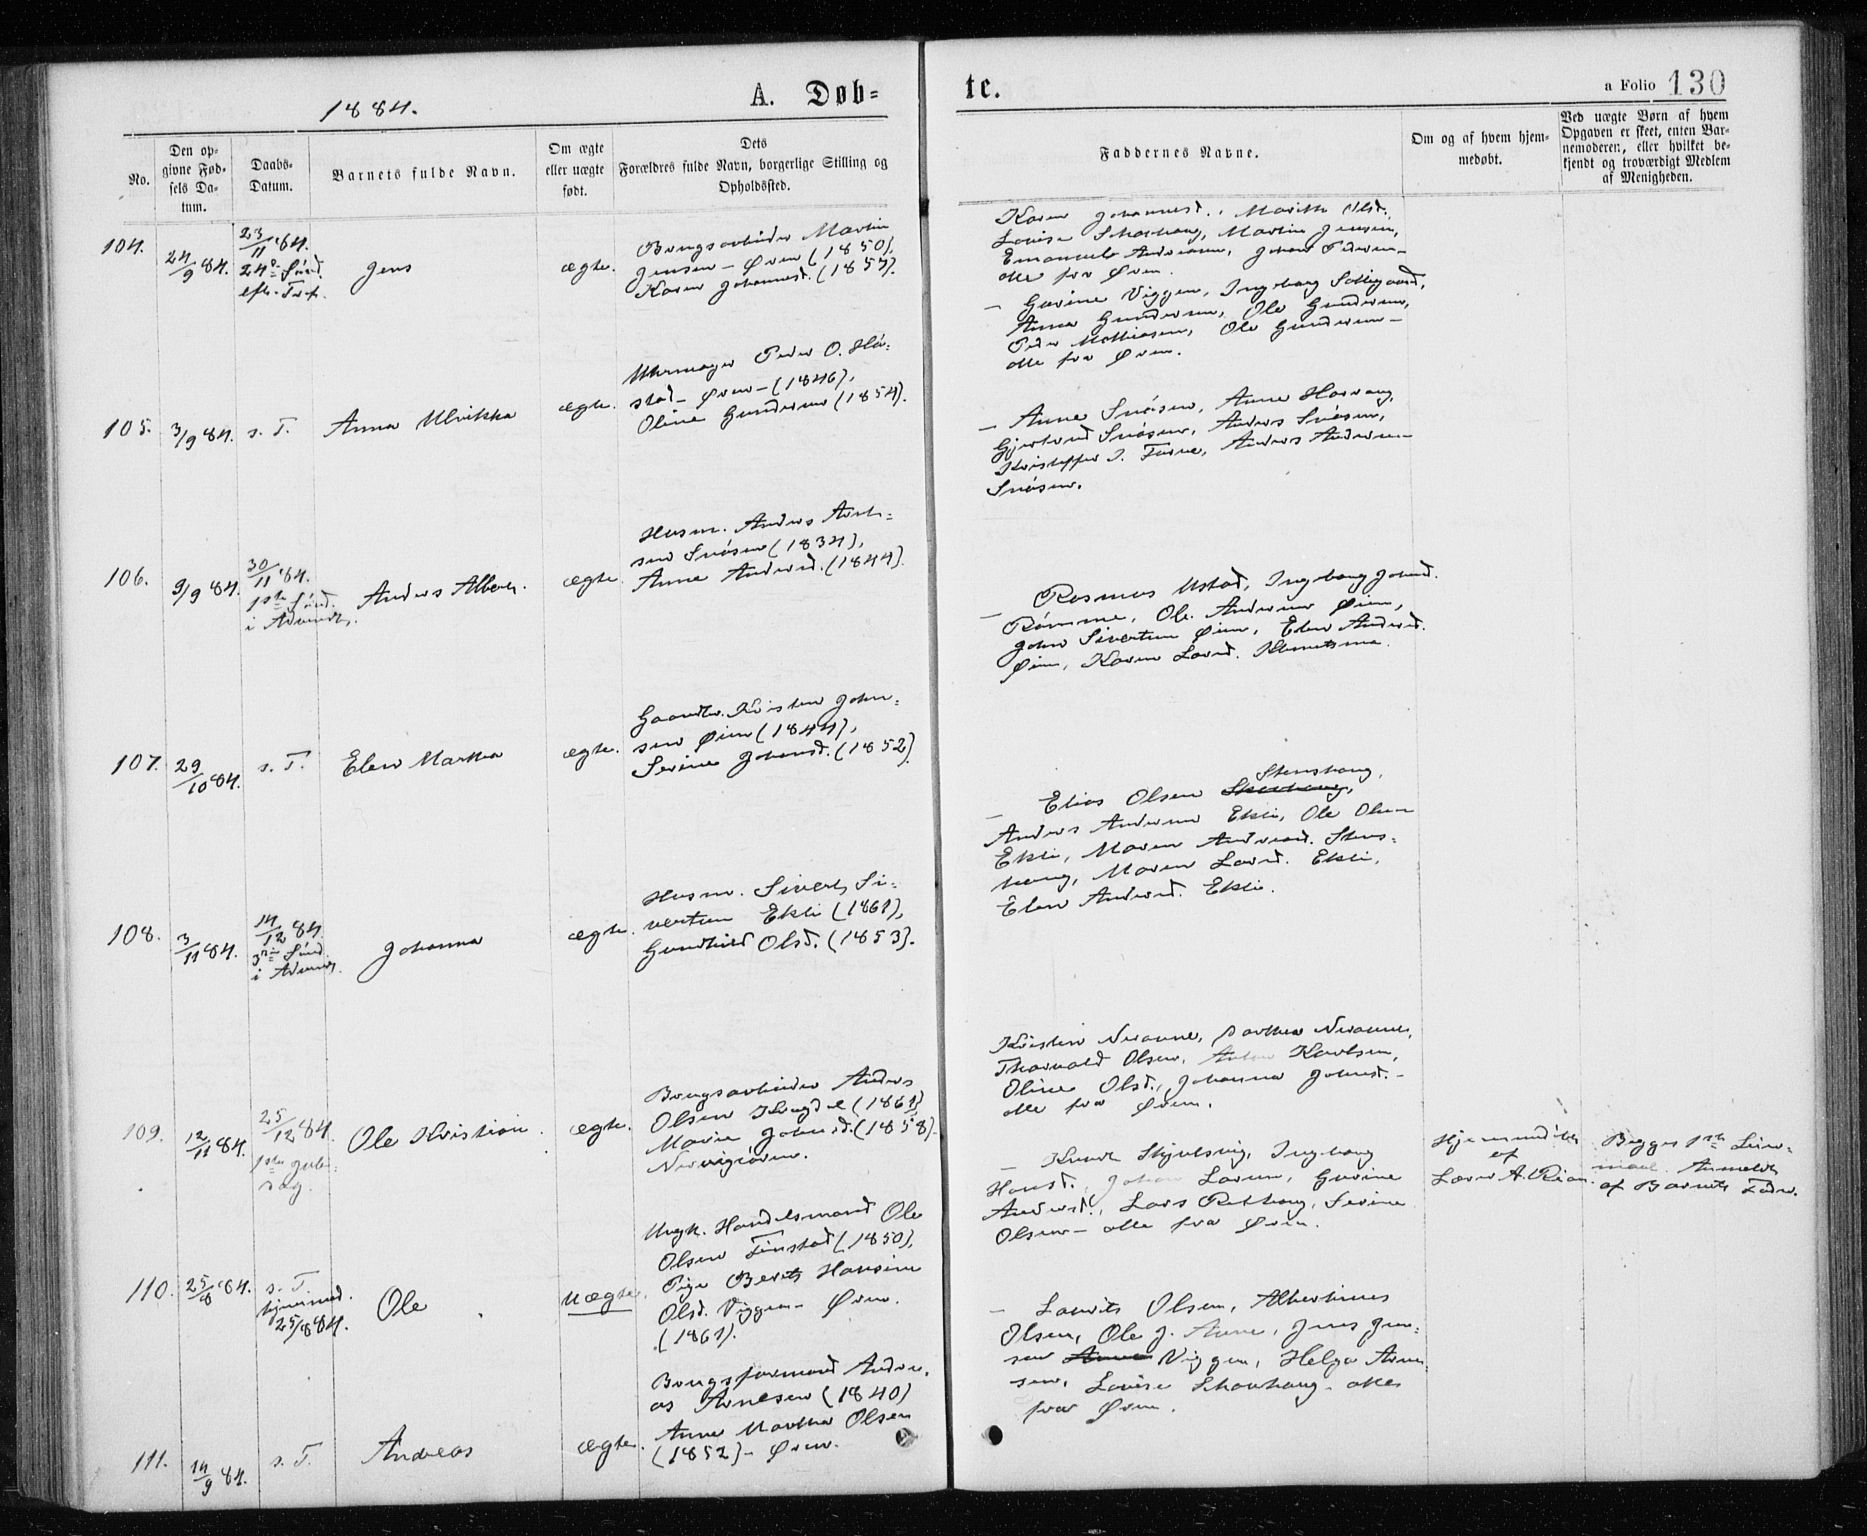 1884.
A. Døb=
te.
a Folio 130
No.
Den op=
givne Fød=
sels Da=
tum.
Daabs=
Datum.
Barnets fulde Navn.
Om ægte
eller uægte
født.
Dets
Forældres fulde Navn, borgerlige Stilling og
Opholdssted.
Faddernes Navne.
Om og af hvem hjem=
medøbt.
Ved uægte Børn af hvem
Opgaven er skeet, enten Bar=
nemoderen, eller hvilket be=
kjendt og troværdigt Medlem
af Menigheden.
104.
24/9 84.
23/11 84.
24de Sönd.
efter Tref.
Jens
ægte.
Brugsarbeider Martin
Jensen - Ören (1850),
Karen Johannesd. (1857).
Karen Johannesd., Marith Olsd.,
Lovise Skarhaug, Martin Jensen,
Emanuel Andreasen, Johan Pedersen -
alle fra Ören.
105.
3/9 84.
s. T.
Anna Ulrikka
ægte.
Uhrmager Peder O. Hå=
stad - Ören - (1846),
Oline Gundersen (1854).
- Gurine Viggen, Ingeborg Solligaard,
Anna Gundersen, Ole Gundersen,
Peder Mathiasen, Ole Gundersen -
alle fra Ören.
106.
9/9 84.
30/11 84.
1ste Sönd.
i Advent.
Anders Albert.
ægte.
Husm. Anders Arnt=
sen Snösen (1834),
Anne Andersd. (1844).
- Anne Snösen, Anne Harang,
Gjertrud Snösen, Anders Snösen,
Kristoffer J. Andersen
Snösen.
107.
29/10 84.
s. T.
Elen Martha
ægte.
Gaardbr. Kristen John=
sen Öien (1844),
Serine Johansd. (1852).
- Rasmus Ustad, Ingeborg Johnsd.
Römme, Ole Andersen Öien,
John Sivertsen Öien, Elen Andersd.
Öien, Karen Larsd.
108.
3/11 84.
14/12 84.
3die Sönd.
i Advent.
Johanna
ægte.
Husm. Sivert Si=
vertsen Ekli (1861),
Gundhild Olsd. (1853).
Stenshaug,
- Elias Olsen
Anders Andersen Ekli, Ole Olsen
Ekli, Maren Andreasd. Stens=
haug, Maren Larsd. Ekli,
Elen Andersd. Ekli.
109.
12/11 84.
25/12 84.
1ste Jule=
dag.
Ole Kristian
ægte.
Brugsarbeider Anders
Olsen (1861)
Marie Johnsd. (1858) -
Kristen Nerønne, Dorthea Nerønne,
Thorvald Olsen, Anton Karlsen,
Oline Olsd., Johanna Johnsd. -
alle fra Ören.
110.
25/8 84.
s. T.
hjemmed.
25/8 84.
Ole
uægte.
Ungk. Handelsmand Ole
Olsen Finstad (1850),
Pige Berit Hansine
Olsd. Viggen - Ören.
(1861).
- Knud Skjølsvig, Ingeborg
Hansd., Johan Larsen, Gurine
Andersd., Lars Rothaug, Serine
Olsen - alle fra Ören.
Hjemmedöbt
af
Lærer A. Rian.
Begges 1ste Leier=
maal. Anmeldt
af Barnets Fader.
111.
14/9 84.
s. T.
Andreas
ægte.
Brugsformand Andre=
as Arnesen (1840)
Anne Martha Olsen
(1852) - Ören.
- Laurits Olsen, Albertine
Olsen, Ole J. Aune, Jens Jen=
sen Viggen, Helga Arne=
sen, Lovise Skarhaug - alle
fra Ören.